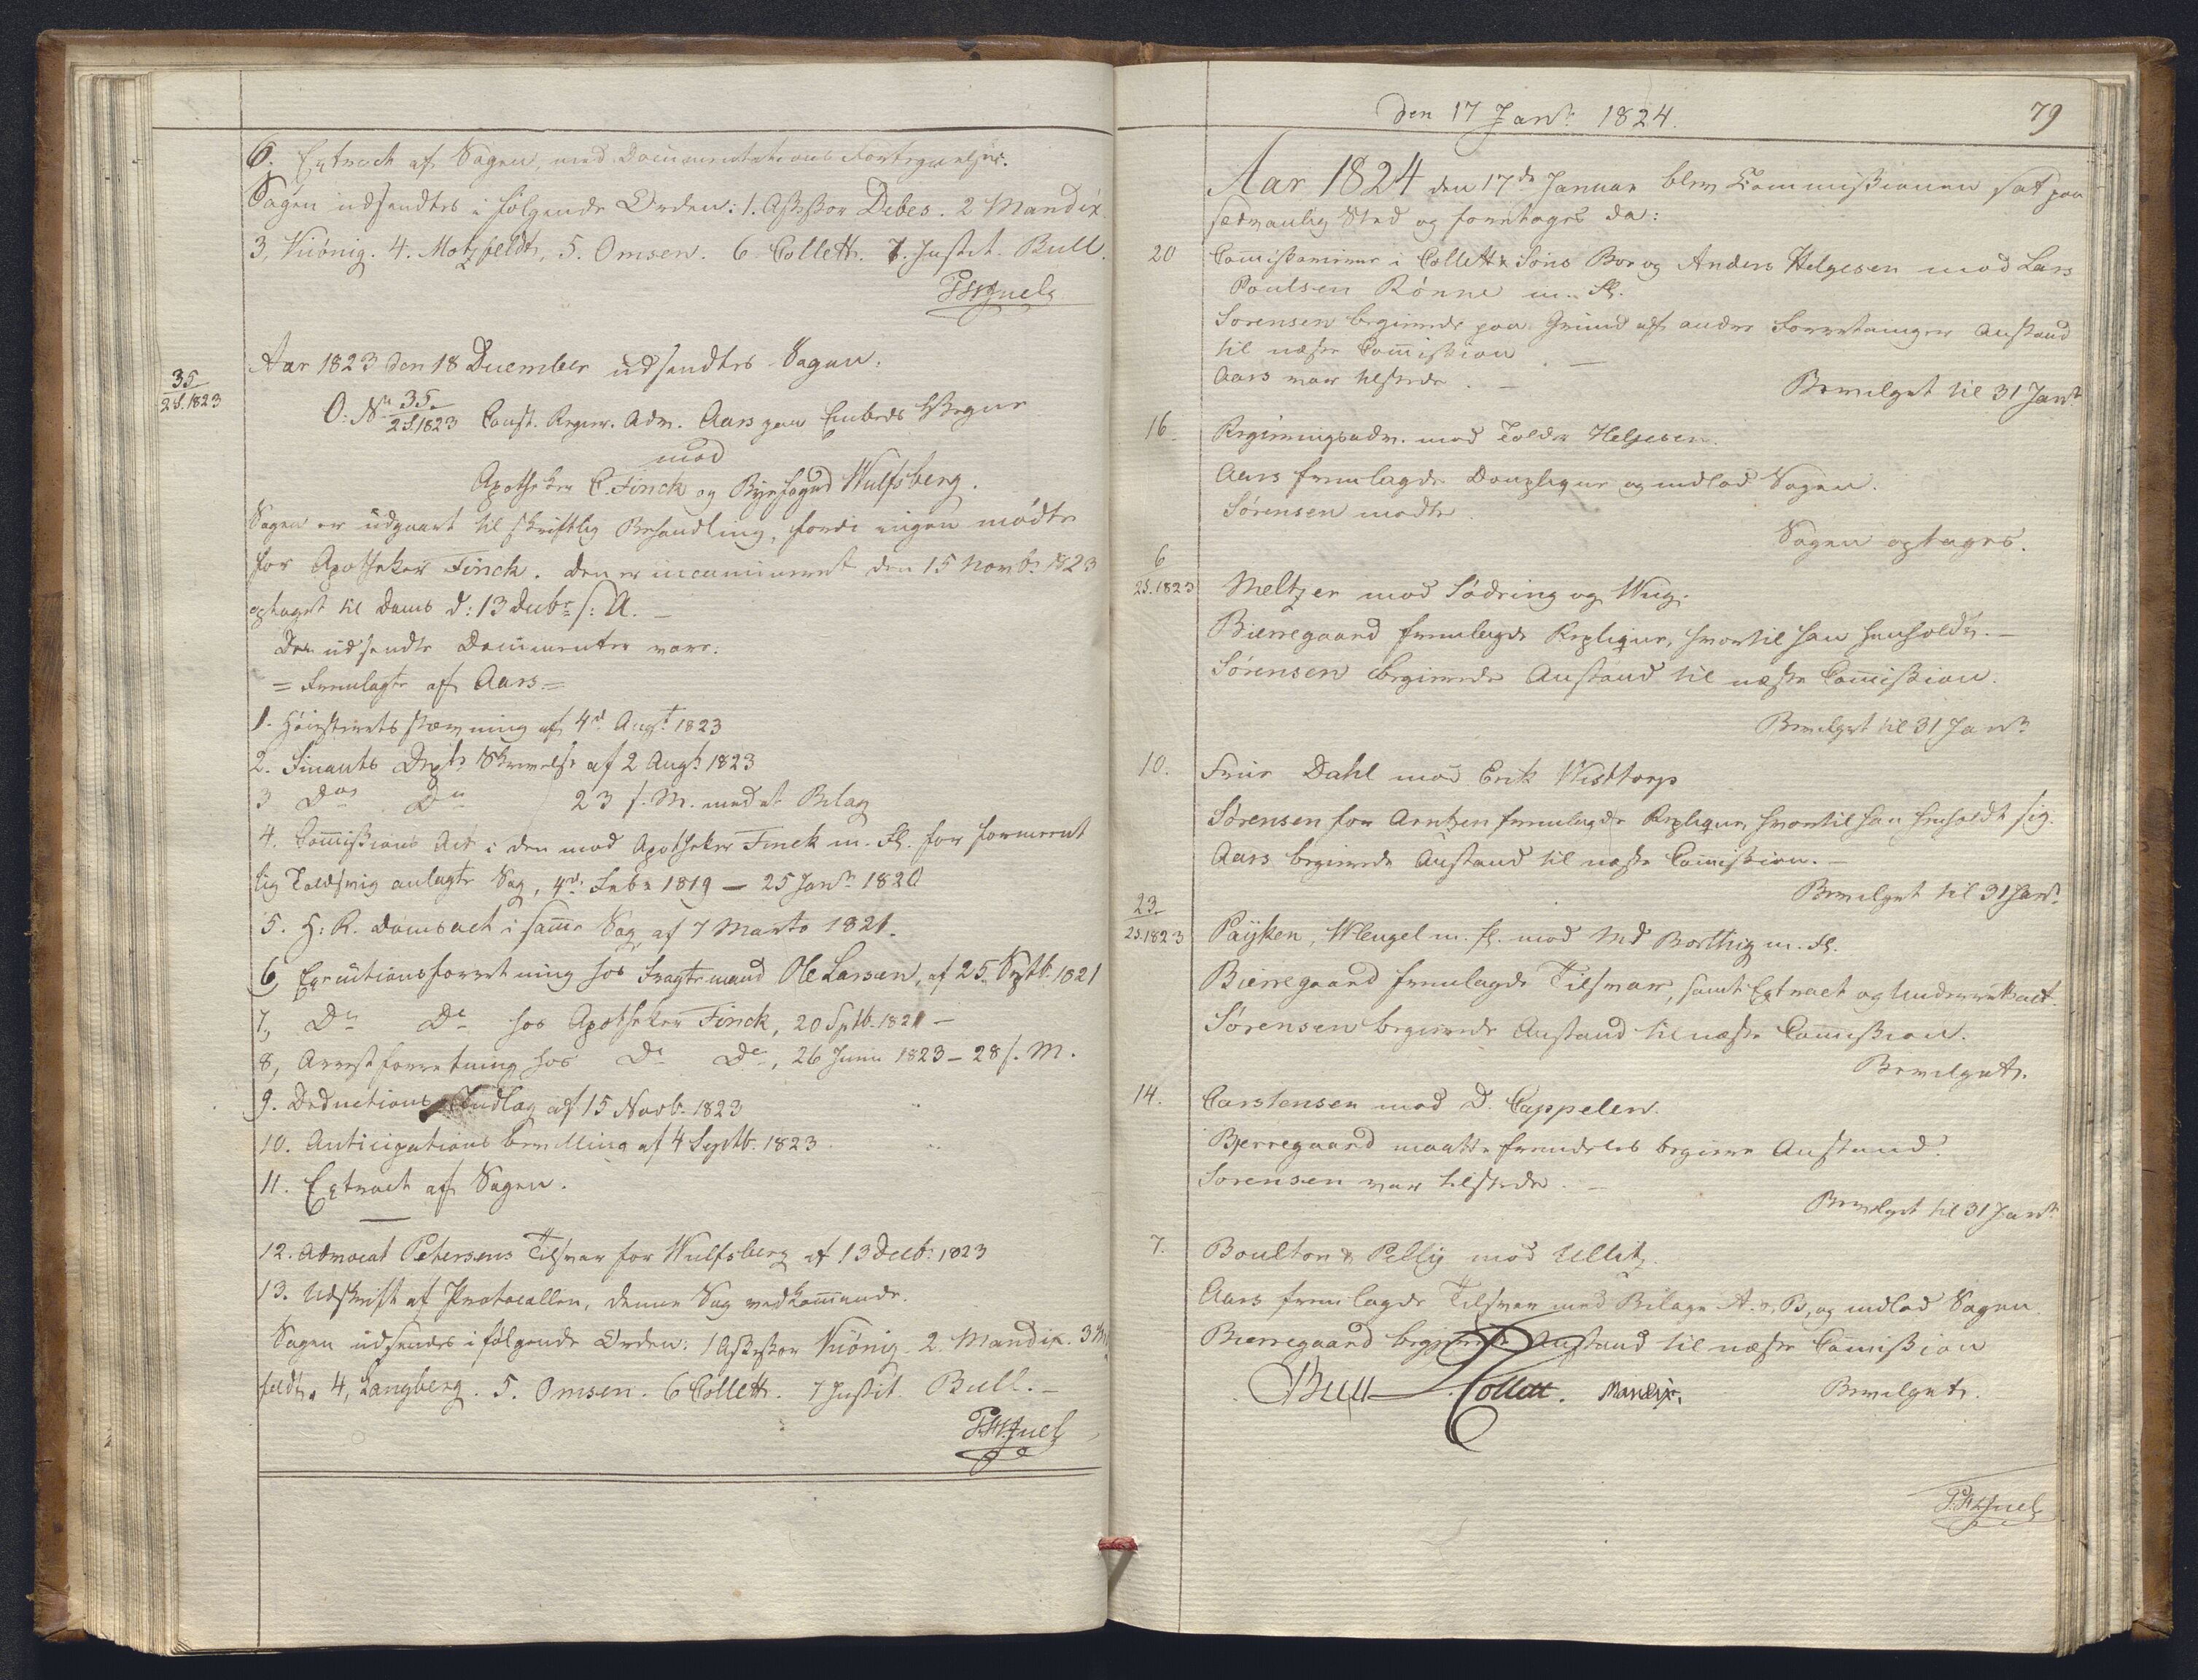 6. Extract af Sagen, med Documentations Fortegnelser.
Sagen udsendtes i følgende Orden: 1. Assessor Debes. 2 Mandix
3, Viönig. 4. Motzfeldt, 5. Omsen. 6. Collett. 7. Justit. Bull.
Aar 1823 den 18 December udsendtes Sagen:
35
2 S. 1823
O: No 35
2 S. 1823 Const. Regier. Adv. Aars paa Embeds Vegne
mod
Apotheker C. Finck og Byefogud Wulfsberg.
Sagen er udgaaet til skriftlig Behandling, fordi ingen mödte
for Apotheker Finck. Den er incamineret den 15 Novbr 1823
optaget til Doms d: 13 Decbr s: A. –
De udsendte Documenter vare:
= Fremlagte af Aars =
1. Höiesterets Stævning af 4de Augt 1823
2. Finants Depts Skrivelse af 2 Augt 1823
3 Dos Do 23 s. M. med et Bilag
4. Com̄issions Act i den mod Apotheker Finck m. Fl. for formeent
lig Toldsvig anlagte Sag, 4de Febr 1819 – 25 Janr 1820
5. H: R. Domsact i sam̄e Sag af 7 Marts 1821.
6, Executionsforretning hos Fragtemand Ole Larsen, af 25 Septb. 1821
7, Do Do hos Apotheker Finck, 20 Sptb. 1821 –
8, Arrestforretning hos Do Do, 26 Juni 1823 – 28 s. M.
9. Deductions Indlæg af 15 Novb. 1823
10. Anticipations bevilling af 4 Septb. 1823
11. Extract af Sagen.
12. Advocat Petersens Tilsvar for Wulfsberg af 13 Decb. 1823
13. Udskrift af Protocollen, denne Sag vedkom̄ende.
Sagen udsendes i følgende Orden: 1 Assessor Viönig. 2. Mandix. 3 Motz
feldt. 4, Langberg. 5. Omsen. 6 Collett. 7 Justit. Bull. –
Den 17 Janr 1824.
79
Aar 1824 den 17de Januar blev Commissionen sat paa
sædvanlig Sted og foretages da:
20 Com̄issionairerne i Collett & Söns Boe og Anders Helgesen mod Lars
Poulsen Rönne m. Fl.
Sorensen begierede paa Grund af andre Forretninger Anstand
til næste Com̄ission. –
Aars var tilstede. –
Bevilget til 31 Janr
16. Regieringsadv. mod Tolder Helgesen.
Aars fremlagde Duplique og indlod Sagen.
Sörensen mödte.
Sagen optages.
6
2 S. 1823 Meltzer mod Södring og Wug.
Bierregaard fremlagde Replique, hvortil han henholdt. –
Sörensen begierede Anstand til næste Com̄ission.
Bevilget til 31 Janr
10. Frue Dahl mod Erik Wisttorp
Sörensen for Arntzen fremlagde Replique, hvortil han henholdt sig.
Aars begierede Anstand til næste Com̄ission. –
Bevilget til 31 Janr
23
2 S. 1823 Paÿken, Wleugel m. fl. mod Md Borthig m. Fl.
Bierregaard fremlagde Tilsvar, samt Extract og Underretsact.
Sörensen begierede Anstand til næste Com̄ission.
Bevilget.
14. Carstensen mod D. Cappelen.
Bjerregaard maatte fremdeles begiere Anstand.
Sorensen var tilstede. –
Bevilget til 31 Janr
7. Boulton & Pellij mod Ullitz.
Aars fremlagde Tilsvar med Bilage A. & B, og indlod Sagen.
Bierregaard begierede Anstand til næste Com̄ission
Bevilget.
Bull Collett. Mandix.